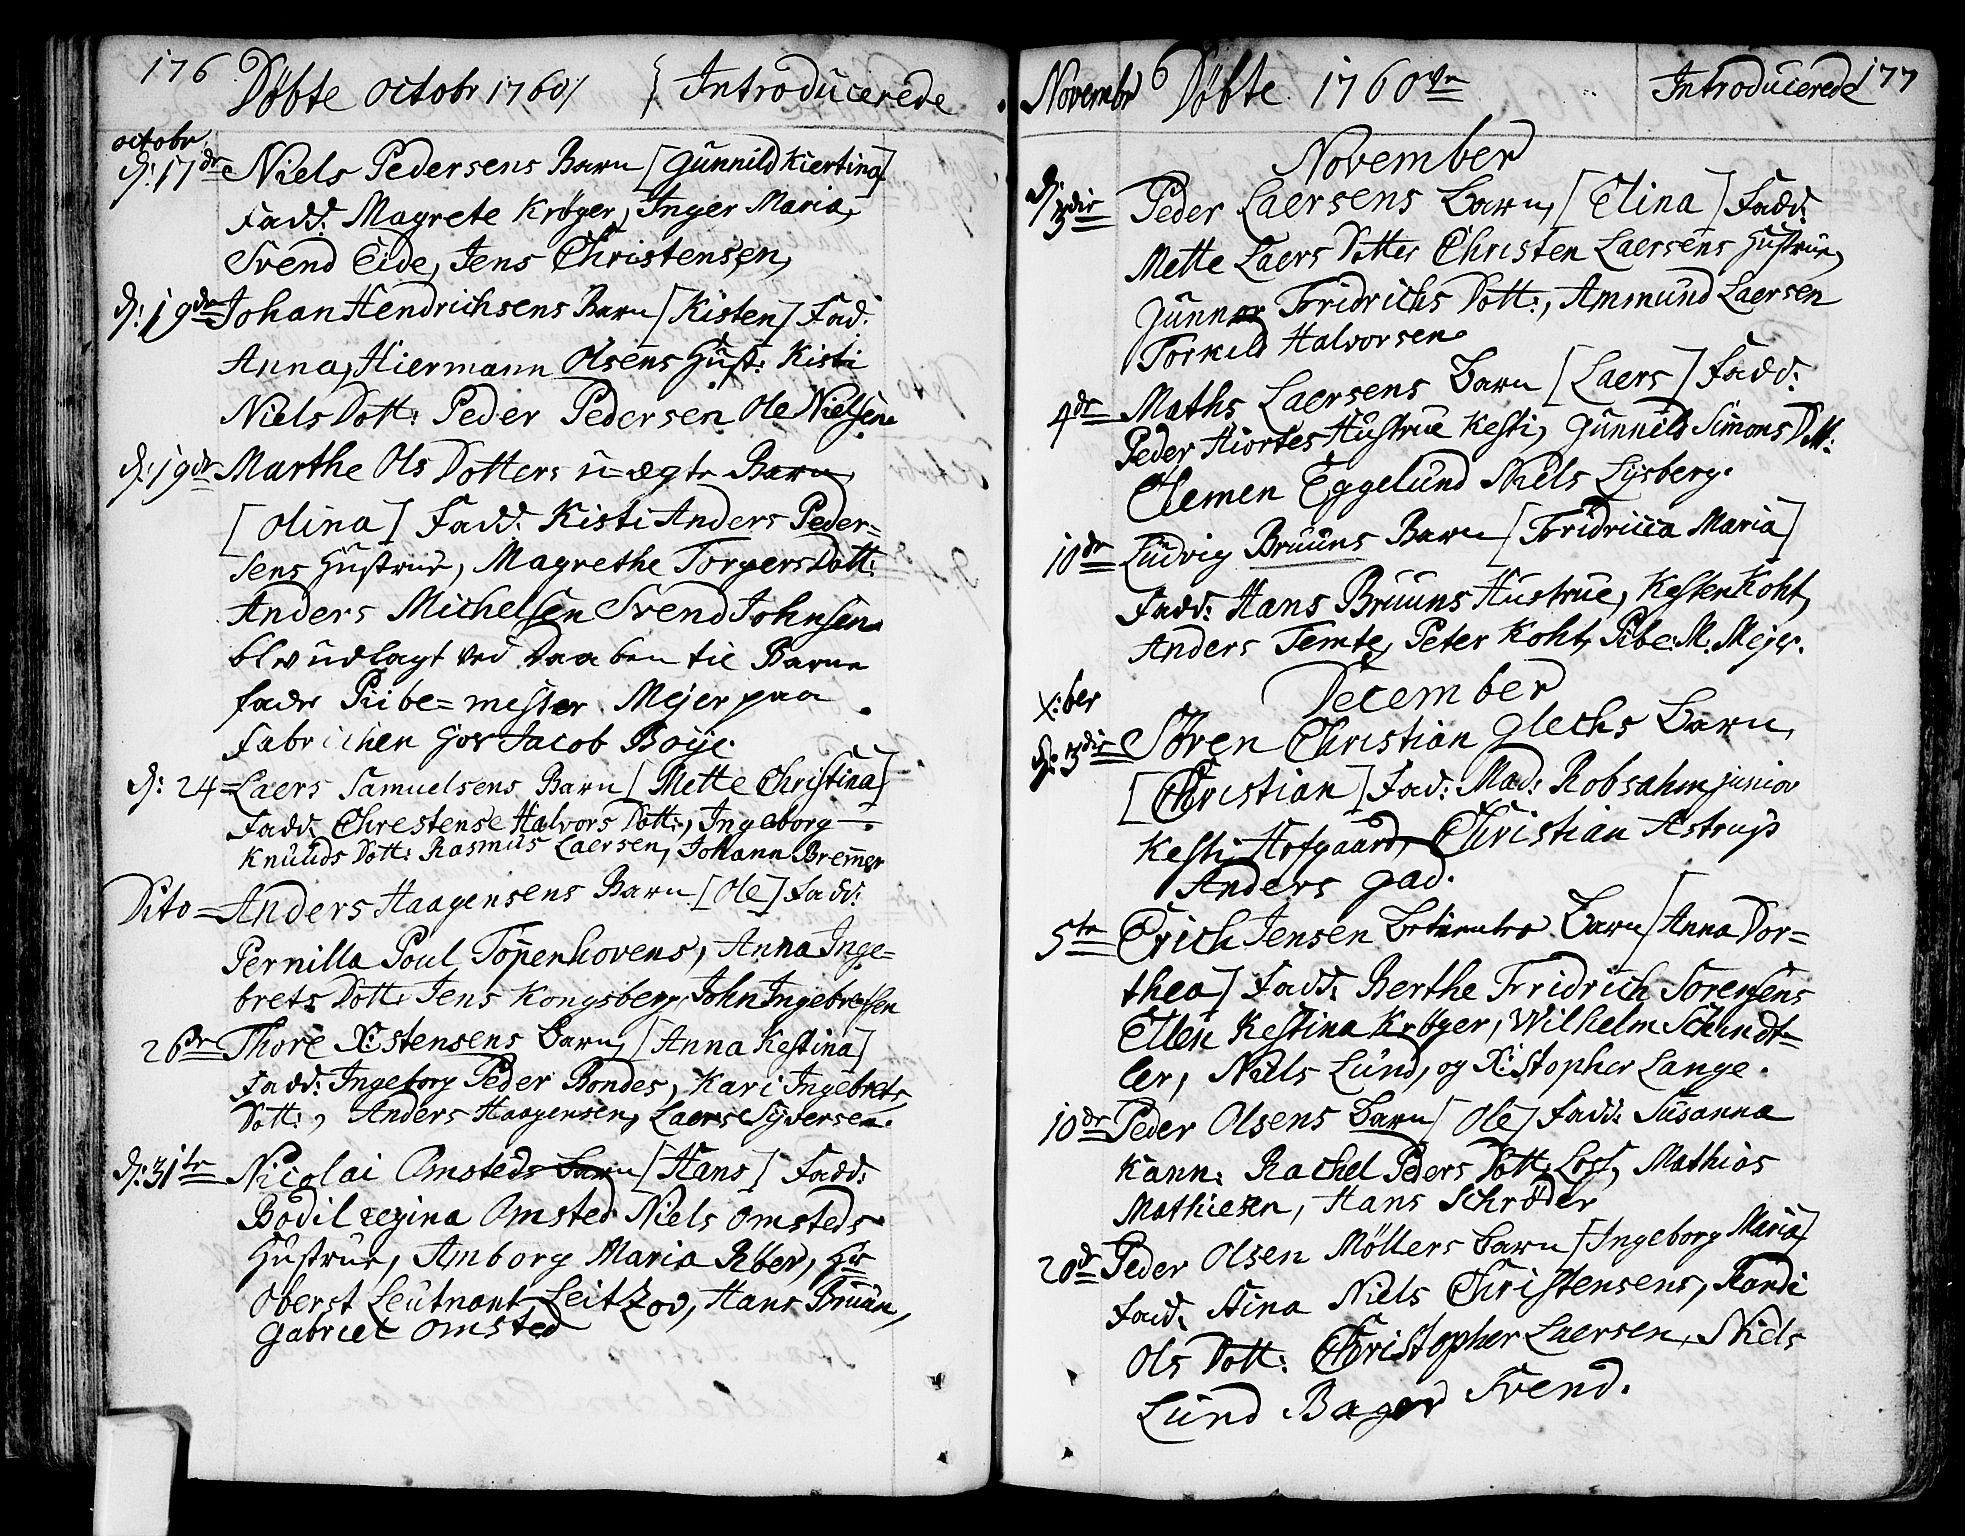 176 Døbte octobr 1760/ Introducerede
octobr
d: 17de Niels Pedersens Barn [Gunnild Kiertina]
Fadd: Magrete Krøger, Inger Maria,
Svend Eide, Jens Christensen,
d: 19de Johan Hendrichsens Barn [Kisten] Fad:
Anna, Hiermann Olsens Hust: Kisti
Niels Dott: Peder Pedersen Ole Nielsen
d: 19de Marthe Ols Dotters uægte Barn
[Olina] Fadd: Kisti Anders Peder=
sens Hustrue, Magrethe Torgers Dott:
Anders Michelsen Svend Johnsen
blev udlagt ved Daaben til Barne
fader Piibe=mester Mejer paa
Fabrichen hos Jacob Boÿe.
d: 24= Laers Samuelsens Barn [Mette Christina]
Fadd: Chrestense Halvors Dott:, Ingeborg
Knuuds Dott: Rasmus Laersen, Johann Bremer
Dito= Anders Haagensens Barn [Ole] Fadd:
Pernilla Poul Topenhovens, Anna Inge=
brets Dott: Jens Kongsberg, John Ingebretsen
26de Thore Xstensens Barn, [Anna Kestina]
Fadd: Ingeborg Peder Bondes, Kari Ingebrets
Dott:, Anders Haagensen, Laers Syversen.
d: 31te Nicolai Omsteds Barn [Hans] Fadd:
Bodil regina Omsted Niels Omsteds
Hustrue, Amborg Maria Riber, Hr
Oberst Leutnant Leitzov, Hans Bruun,
Gabriel Omsted
Novembr Døbte 1760ve Introducerede 177
November
d: 3die Peder Laersens Barn, [Elina] Fadd:
Mette Laers Dotter Christen Laersens Hustrue,
Gunnor Fridrichs Dott:, Ammund Laersen
Torkild Halvorsen
4de Maths Laersens Barn [Laers] Fadd:
Peder Hiortes Hustrue Kesti, Gunnild Simons Dtt:
Clemen Eggelund Niels Lysberg.
10de Ludvig Bruuns Barn [Fridricca Maria]
Fadd: Hans Bruuns Hustrue, Kesten Koht,
Anders Temte, Peter Koht, Pibe: M. Mejer.
December
X:ber
d: 3die Søren Christian Glechs Barn,
[Christian] Fad: Mad: Robsahm junior
Kesti Hofgaard, Christian Astrup
Anders Gad.
5te Erich Jensen Barn [Anna Dor=
thea] Fadd: Berthe Fridrich Sorensens
Ellen Kestina Krøger, Wilhelm Schindt=
ler, Niels Lund, og X:stopher Lange.
10de Peder Olsens Barn [Ole] Fadd: Susanna
Kann: Rachel Peders Dott: Lost, Mathias
Mathiesen, Hans Schrøder
20de Peder Olsen Möllers Barn [Ingeborg Maria]
Fadd: Stina Niels Christensens, Randi
Ols Dott: Christopher Laersen, Niels
Lund Bager Svend.